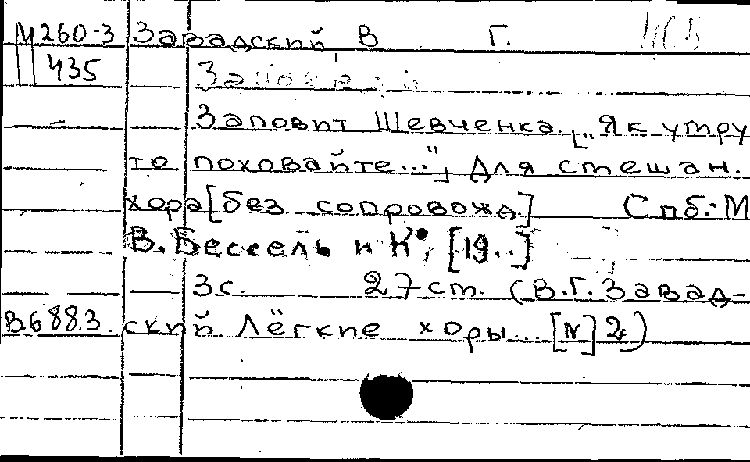 М260-3 Завадский В Г.
435
Заповит Шевченка. [„Як умру
то поховайте..."] Для смешан.
хора [без сопровожд.] Спб.-М
В. Бессель и К°, [19..]
3 с. 27 см. (В.Г. Завад-
В6883. ский Лёгкие хоры... [N] 2)